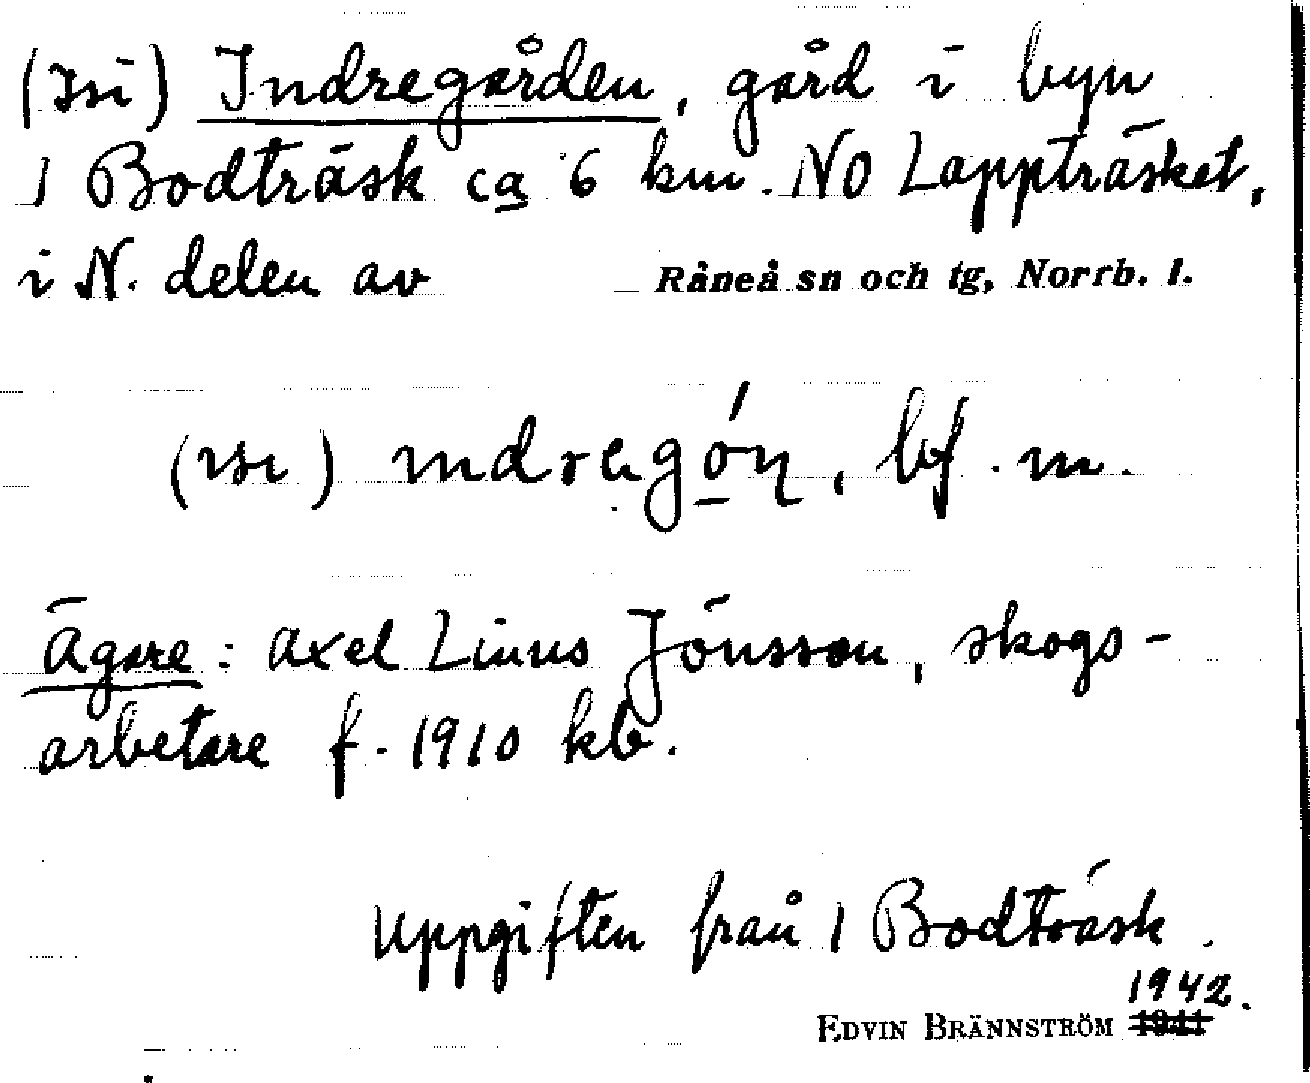 (isi) Indregården, gård i byn
1 Bodträsk ca 6 km. NO Lappträsket,
i N. delen av Råneå sn och tg, Norrb. l.
(ısı) ındregó̱n, bf. m.
Ägare: Axel Linus Jönsson, skogs-
arbetare f. 1910 kb.
Uppgiften från 1 Bodträsk.
1942.
EDVIN BRÄNNSTRÖM 1941